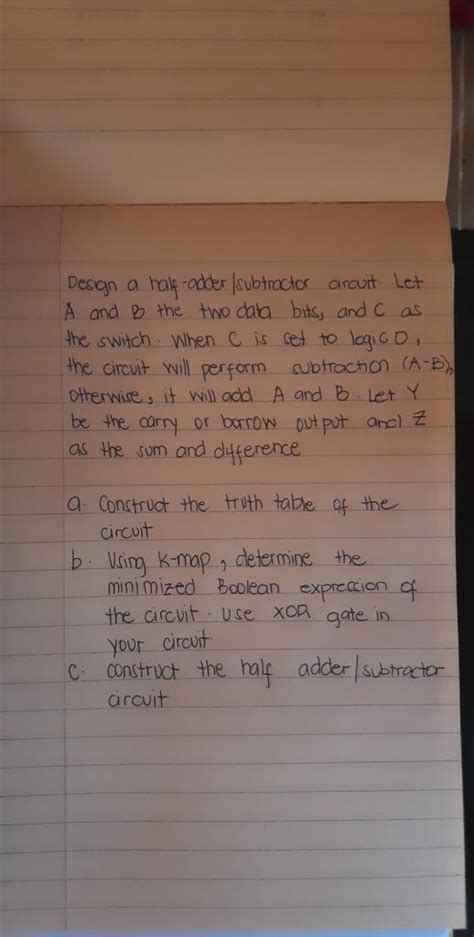 Design a half-adder/subtractor circuit. Let
A and B the two data bits, and C as
the switch. When C is set to logic 0,
the circuit will perform subtraction (A-B),
otherwise, it will add A and B. Let Y
be the carry or borrow output and Z
as the sum and difference
a. Construct the truth table of the
circuit
b. Using K-map, determine the
minimized Boolean expression of
the circuit. Use XOR gate in
your circuit.
c. construct the half adder/subtractor
circuit.